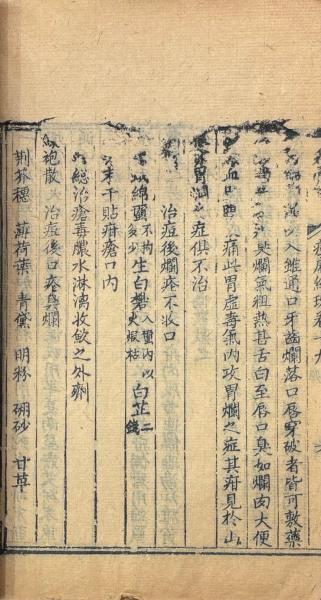 以入雖通口牙齒爛落口唇穿破者皆可敷藥
臭爛氣粗熱甚舌白至唇口臭如爛肉大便
痛此胃虛毒氣內攻胃爛之症其疳見於山
胃爛 症俱不治
治痘後爛瘡不收口
綿繭不拘多少 生白礬入繭內以火煅枯 白芷二錢
末干貼疳瘡口內
總治瘡毒膿水淋漓收歛之外劑
袍散 治痘後口瘡臭爛
荆芥穗 薄荷葉 青黛 明粉 硼砂 甘草